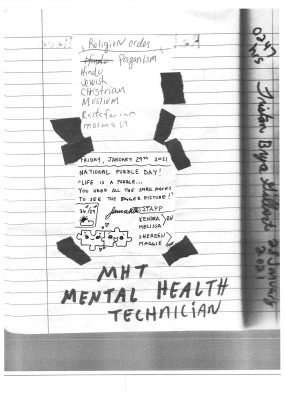 Religion order
Paganism
Hindy
Jewish
Christrian
Muslium
Rastafarian
morman
FRIDAY, JANUARY 29TH 2021
NATIONAL PUZZLE DAY!
"LIFE IS A PUZZLE...
YOU NEED ALL THE SMALL PIECES
TO SEE THE BIGGER PICTURE!"
STAFF
KENDRA
MELISSA
SHEREEN
MAGGIE
MHT
MENTAL HEALTH
TECHNICIAN
0247
Tristan
2021